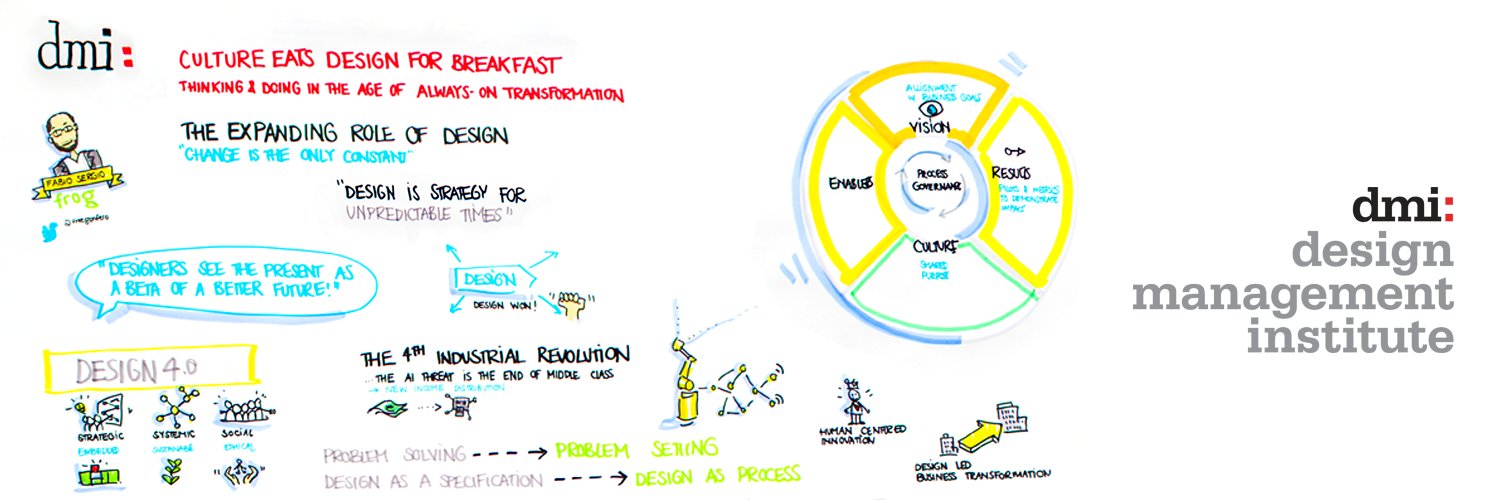 dmi:
CULTURE EATS DESIGN FOR BREAKFAST
THINKING & DOING IN THE AGE OF ALWAYS-ON TRANSFORMATION
FABIO SERGIO
frog
THE EXPANDING ROLE OF DESIGN
"CHANGE IS THE ONLY CONSTANT"
"DESIGN IS STRATEGY FOR
UNPREDICTABLE TIMES"
"DESIGNERS SEE THE PRESENT AS
A BETA OF A BETTER FUTURE!"
DESIGN
DESIGN WON!
DESIGN 4.0
STRATEGIC
SYSTEMIC
SOCIAL
EMBEDDED
SUSTAINABLE
ETHICAL
THE 4TH INDUSTRIAL REVOLUTION
...THE AI THREAT IS THE END OF MIDDLE CLASS
→ NEW INCOME DISTRIBUTION
PROBLEM SOLVING ---→ PROBLEM SETTING
DESIGN AS A SPECIFICATION ---→ DESIGN AS PROCESS
ALIGNMENT
W BUSINESS GOALS
VISION
ENABLERS
PROCESS
GOVERNANCE
RESULTS
PILOTS & METRICS
TO DEMONSTRATE
IMPACT
CULTURE
SHARED
PURPOSE
HUMAN CENTRED
INNOVATION
DESIGN LED
BUSINESS TRANSFORMATION
dmi:
design
management
institute